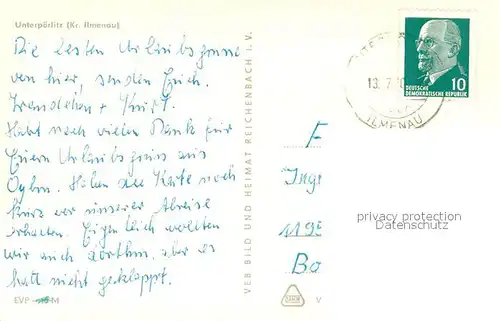 Unterpörlitz (Kr. Ilmenau)
Die besten Urlaubsgrüsse
von hier, senden Euch
+ Kurt.
Habt noch vielen Dank für
Euern Urlaubsgruss aus
Oybin. Haben die Karte noch
kurz vor unserer Abreise
erhalten. Eigentlich wollten
wir auch dorthin, aber es
hatt nicht geklappt.
EVP M
VEB BILD UND HEIMAT REICHENBACH I. V.
DEUTSCHE
DEMOKRATISCHE REPUBLIK
10
13. 7.
ILMENAU
F
Ing
1195
Bo
V
privacy protection
Datenschutz